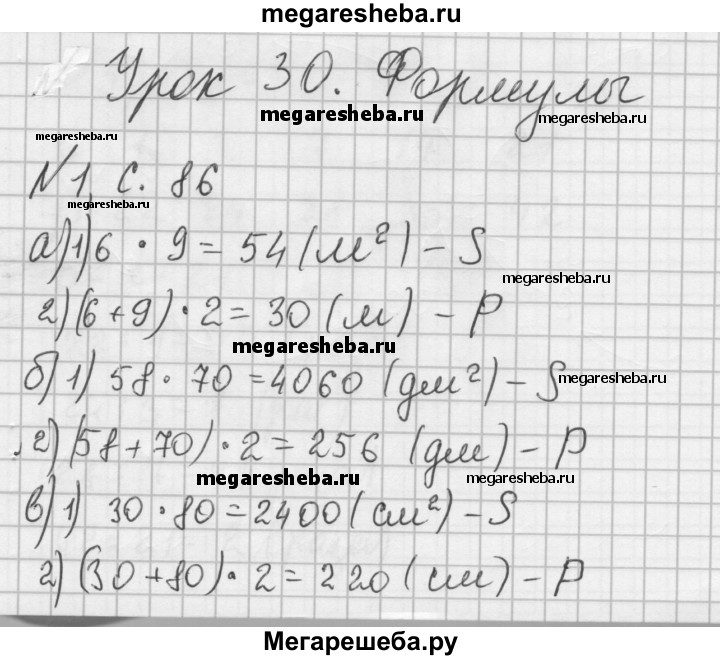 megaresheba.ru
Урок 30. Формулы
megaresheba.ru
megaresheba.ru
megaresheba.ru
N 1, с. 86
megaresheba.ru
а) 1) 6 · 9 = 54 (м²) – S
megaresheba.ru
2) (6 + 9) · 2 = 30 (м) – P
megaresheba.ru
б) 1) 58 · 70 = 4060 (дм²) – S
megaresheba.ru
2) (58 + 70) · 2 = 256 (дм) – P
megaresheba.ru
megaresheba.ru
в) 1) 30 · 80 = 2400 (см²) – S
2) (30 + 80) · 2 = 220 (см) – P
Мегарешеба.ру